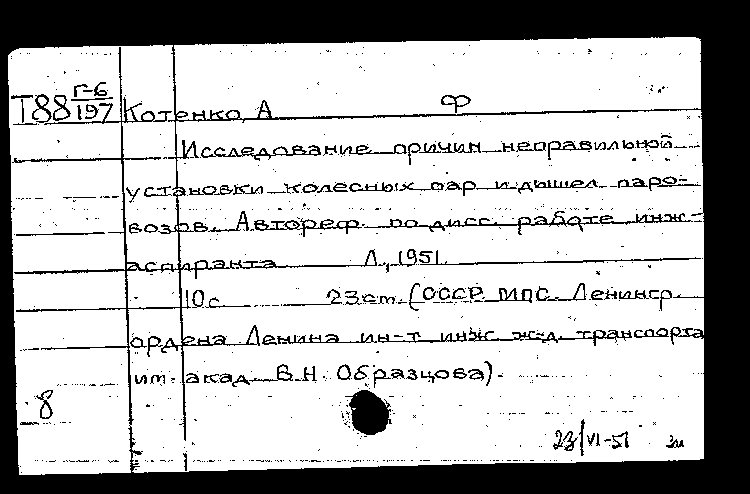 Г-6
Т88 197 Котенко, А Ф
Исследование причин неправильной
установки колесных пар и дышел паро-
возов. Автореф. по дисс. работе инж-
аспиранта Л., 1951.
10с. 23см. (СССР МПС. Ленингр.
ордена Ленина ин-т инж ж-д. транспорта
им. акад. В.Н. Образцова).
8
23/VI-51 Зи